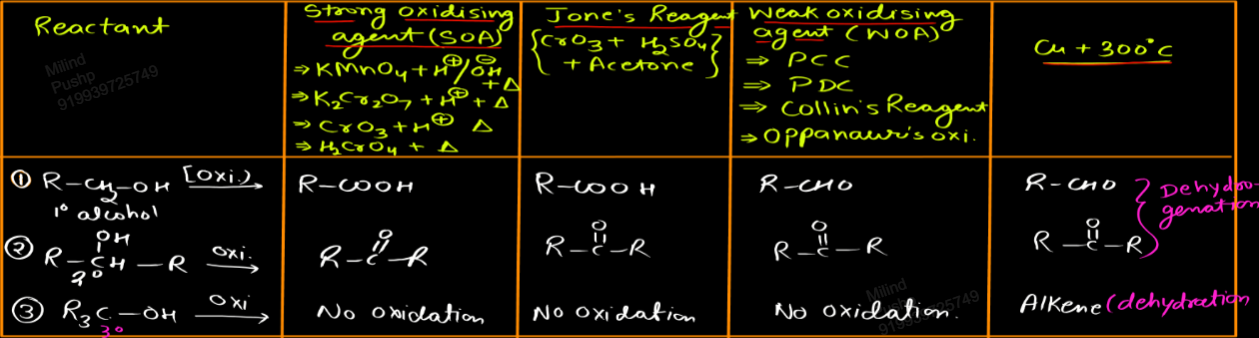 Reactant
Strong oxidising
agent (SOA)
⇒ KMnO4 + H⊕/OH⊖ + Δ
⇒ K2Cr2O7 + H⊕ + Δ
⇒ CrO3 + H⊕ Δ
⇒ H2CrO4 + Δ
Jone's Reagent
{CrO3 + H2SO4
+ Acetone}
Weak oxidising
agent (WOA)
⇒ PCC
⇒ PDC
⇒ Collin's Reagent
⇒ Oppanaur's oxi.
Cu + 300°C
Milind
Pushp
919939725749
① R-CH2-OH [oxi.]→
1° alcohol
R-COOH
R-COOH
R-CHO
R-CHO
Dehydro-
genation
② R-CH-R oxi.→
OH
2°
R-C-R
O
R-C-R
O
R-C-R
O
R-C-R
O
③ R3C-OH oxi→
3°
No oxidation
No oxidation
No oxidation.
Alkene (dehydration
Milind
Pushp
919939725749